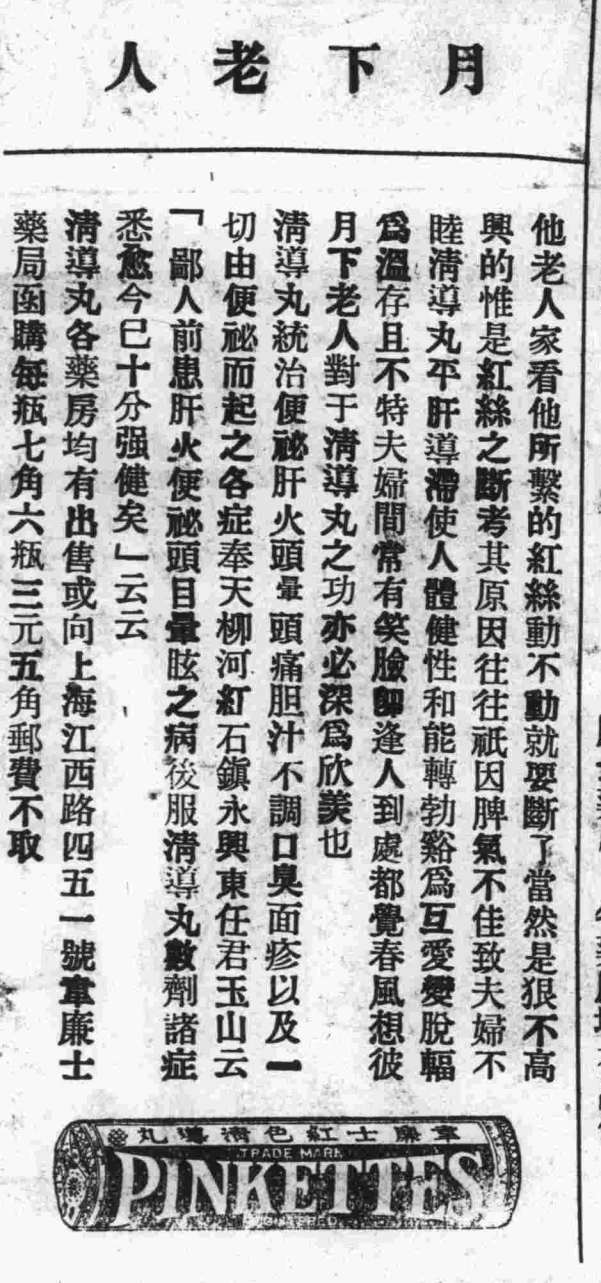 月下老人
他老人家看他所繫的紅絲動不動就要斷了當然是狠不高
興的惟是紅絲之斷考其原因往往祇因脾氣不佳致夫婦不
睦淸導丸平肝導滯使人體健性和能轉勃谿爲互愛變脫輻
爲溫存且不特夫婦間常有笑臉卽逢人到處都覺春風想彼
月下老人對于淸導丸之功亦必深爲欣羨也
淸導丸統治便祕肝火頭暈頭痛胆汁不調口臭面疹以及一
切由便祕而起之各症奉天柳河紅石鎭永興東任君玉山云
「鄙人前患肝火便祕頭目暈眩之病後服淸導丸數劑諸症
悉愈今已十分强健矣」云云
淸導丸各藥房均有出售或向上海江西路四五一號韋廉士
藥局函購每瓶七角六瓶三元五角郵費不取
韋廉士紅色淸導丸
TRADE MARK
PINKETTES